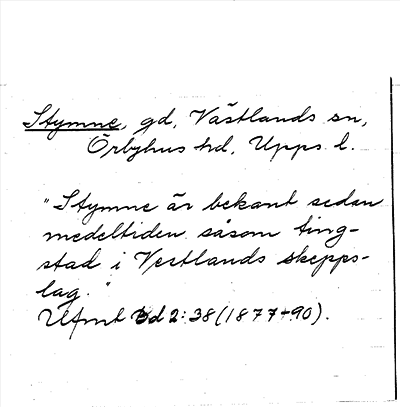 Stymne, gd, Västlands sn,
Örbyhus hd, Upps. l.
"Stymne är bekant sedan
medeltiden såsom ting-
stad i Vestlands skepps-
lag."
Ufmt bd 2: 38 (1877-90).